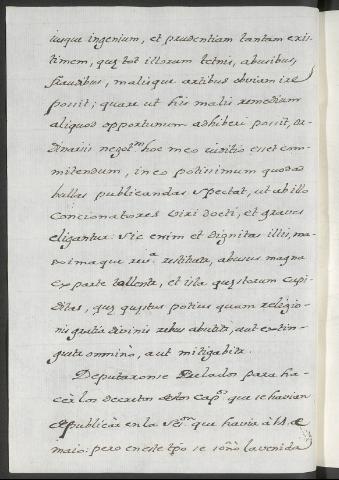 iusque ingenium, et prudentiam tantam exis-
timem, quę tot illorum tetnis, abusibus,
fraudibus, malisque artibus obviam ire
possit; quare ut his malis remedium
aliquod opportunum adhiberi possit, or-
dinariis negotm hoc meo iuditio esset com-
mitendum, in eo potissimum quod ad
bullas publicandas spectat, ut ab illo
concionatores viri docti, et graves
eligantur. Sic enim et dignitas illis, ma-
xima que restituta, abusus magna
ex parte tallentr, et ista quęstorum cupi-
ditas, quę quęstus potius quam religio-
nis gratia divinis rebus abutitr, aut extin-
guetr omnino, aut mitigabitr.
Deputaronse Prelados para ha-
cer los decretos destos capos que se havian
de publicàr en la Seon que havia à 14 de
maio: pero en este tpo se soño la venida